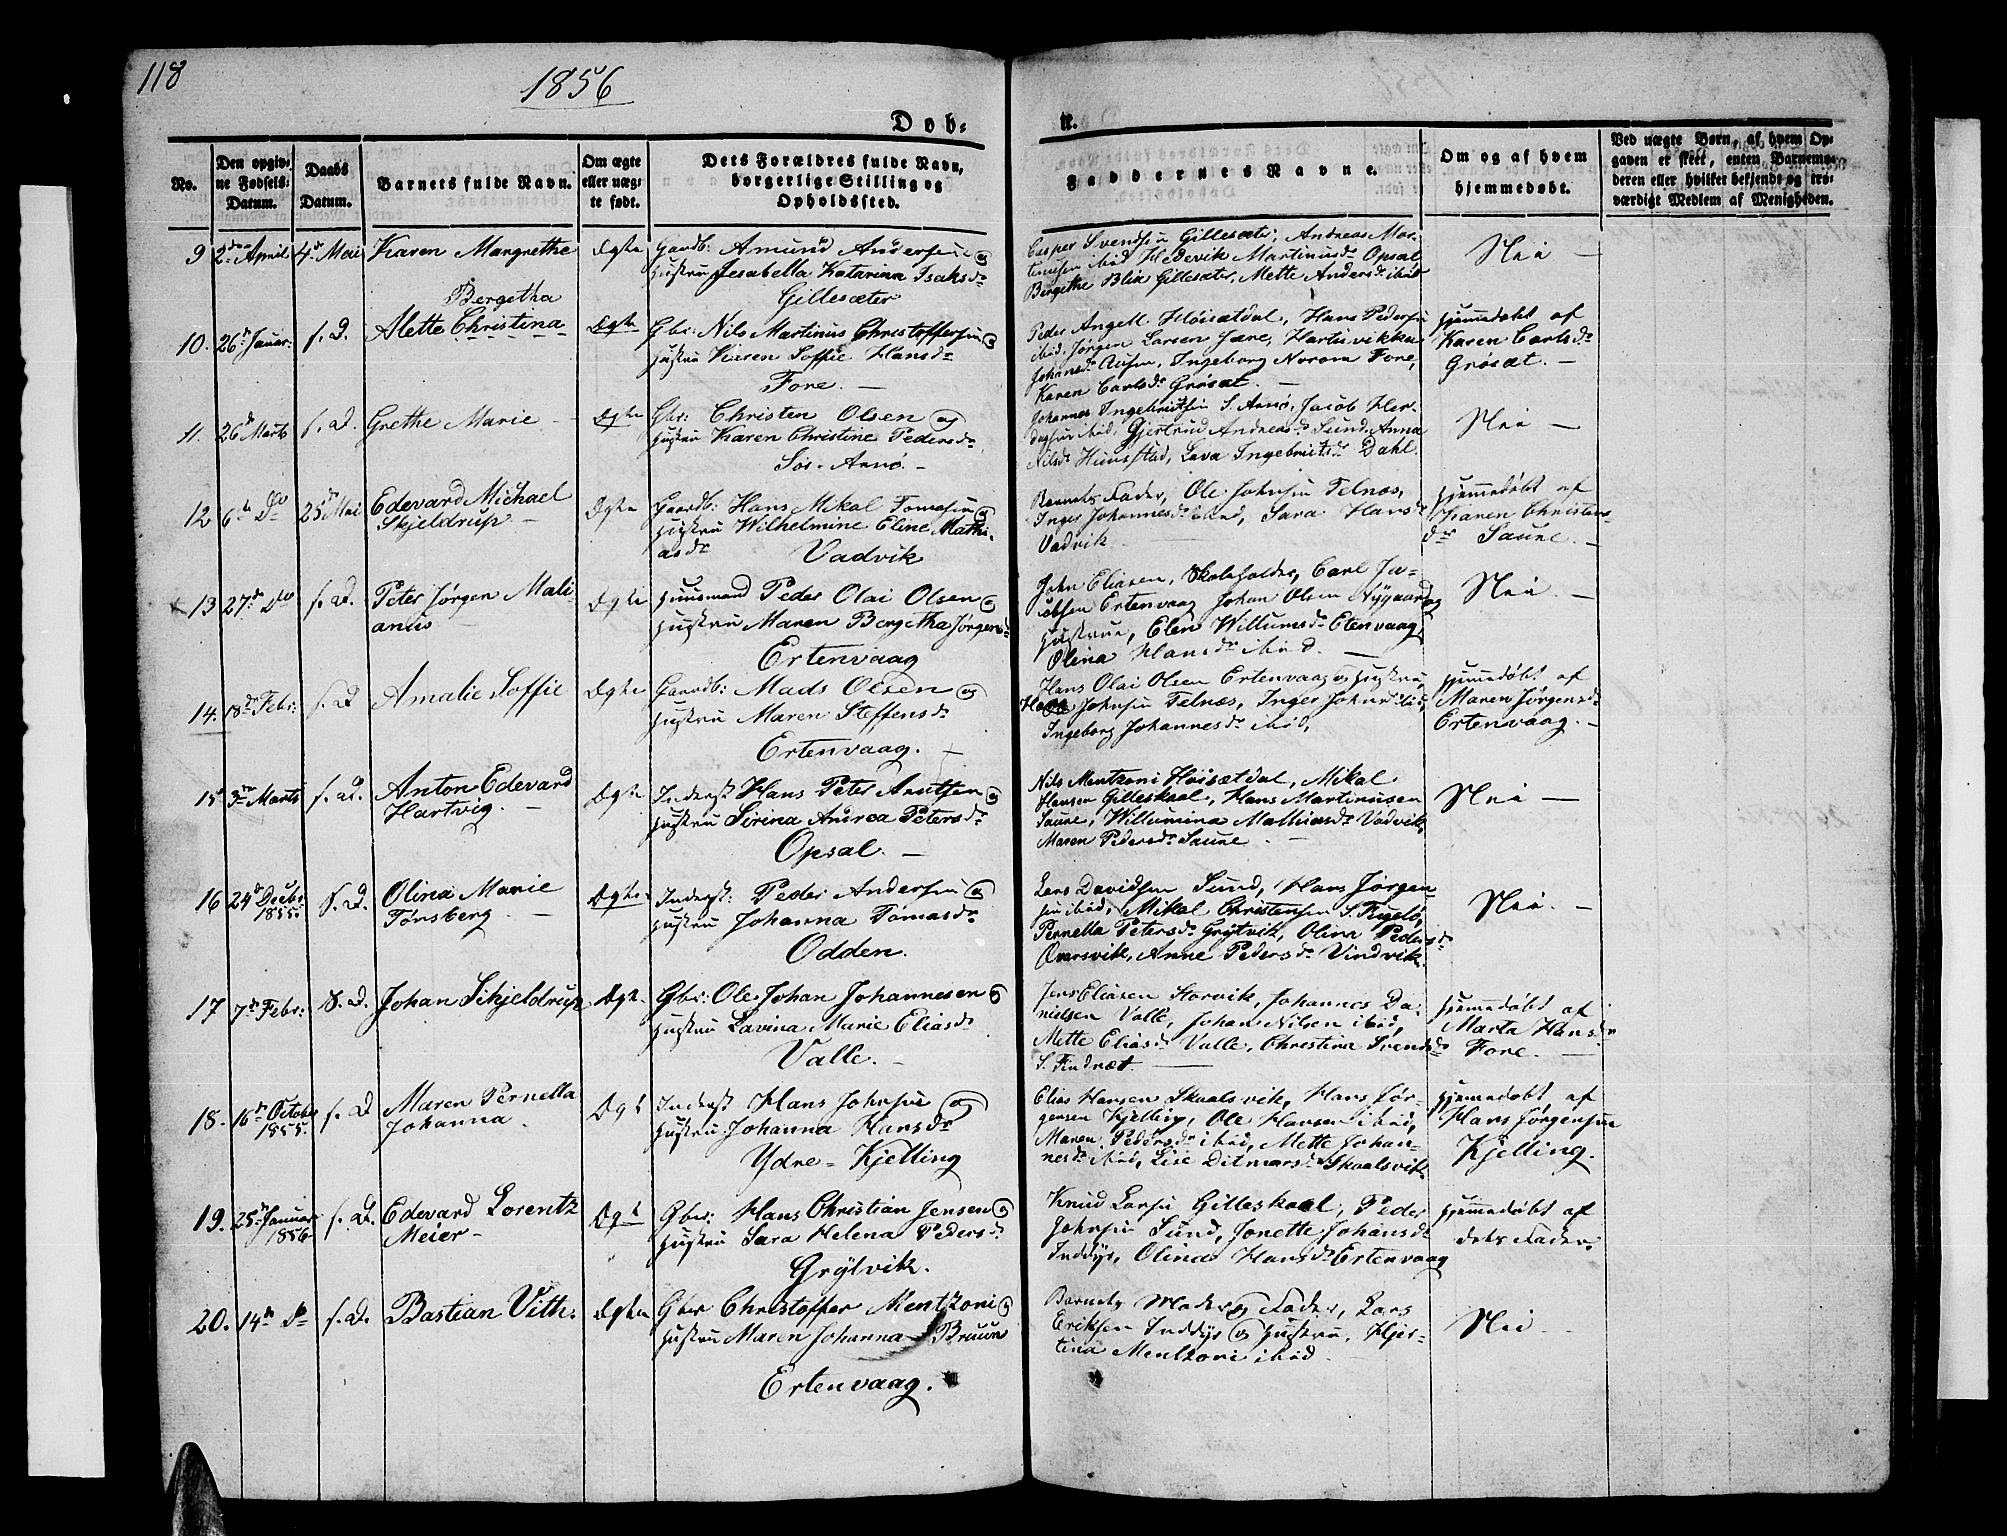 118
1856
Døb-
te.
No.
Den opgiv-
ne Fødsels-
Datum.
Daabs
Datum.
Barnets fulde Navn.
Om ægte
eller uæg-
te født.
Dets Forældres fulde Navn,
borgerlige Stilling og
Opholdssted.
Faddernes Navne.
Om og af hvem
hjemmedøbt.
Ved uægte Børn, af hvem Op-
gaven er skeet, enten Barnemo-
deren eller hvilket bekjendt og tro-
værdigt Medlem af Menigheden.
9 2den April 4de Mai Karen Margrethe Ægte Gaardb: Amund Andersen og
Hustru Jesabella Katarina Isaksdr
Gillesæter
Casper Svendsen Gillesæter, Andreas Mor-
tinesen ibid Hedevik Martinusdr Opsal
Bergithe Blix Gillesæter, Mette Andersdr ibid
Nei —
10. 26de Januar. s. D. Alette Bergetha Christina Ægte Gbr: Nils Martinus Christoffersen og
Hustru Karen Soffie Hansdr
Fore. —
Peder Angell Høisætdal, Hans Pedersen
ibid, Jørgen Larsen Fore, Hartvikka
Johansdr Ausen, Ingeborg Norom Fore,
Karen Carlsdr Grøsæt. —
Hjemmedøbt af
Karen Carlsdr
Grøsæt. —
11. 26de Marts s. D. Grethe Marie — Ægte Gbr: Christen Olsen og
Hustru Karen Christine Pedersdr
Sør-Arnø. —
Johannes Ingebrigtsen S. Arnø, Jacob
ibid, Gjertrud Andreasdr Sund, Anna
Nilsdr Hunstad, Lava Ingebrigtsdr Dahl.
Nei —
12 6de Do 25de Mai Edevard Michael
Skjeldrup — Ægte Gaardb: Hans Mikal Tomasen og
Hustru Wilhelmine Eline Mathi-
asdr Vadvik
Barnets Fader, Ole Johnsen Telnæs,
Inger Johannesdr ibid, Sara Hansdr
Vadvik
Hjemmedøbt af
Karen Christens-
dr Saune. —
13 27de Do s. D. Peter Jørgen Mali-
anus — Ægte Huusmand Peder Olai Olsen og
Hustru Maren Bergetha Jørgensdr
Ertenvaag
John Eliasen, Skoleholder, Carl Ja-
cobsen Ertenvaag Johan Olsen Nygaard og
Hustrue, Elen Willumsdr Etenvaag,
Olina Hansdr ibid. —
Nei. —
14. 18de Febr: s. D Amalie Soffie Ægte Gaardb: Mads Olsen og
Hustru Maren Steffensdr
Ertenvaag. —
Hans Olai Olsen Ertenvaag og Hustru,
Johnsen Telnæs, Inger ibid,
Ingeborg Johannesdr ibid,
Hjemmedøbt af
Maren Jørgensdr
Ertenvaag. —
15 3de Marts s. D. Anton Edevard
Hartvig. — Ægte Inderst Hans Peter Arntsen og
Hustru Sirina Andrea Petersdr
Opsal. —
Nils Mentzoni Høisætdal, Mikal
Hansen Gilleskaal, Hans Martinusen
Saune, Willumina Mathiasdr Vadvik,
Maren Pedersdr Saune —
Nei —
16 24de Decbr:
1855. S. D. Olina Marie
Tønsberg. — Ægte Inderst: Peder Andersen og
Hustru Johanna Tomasdr
Odden.
Lars Davidsen Sund, Hans Jørgen-
sen ibid, Mikal Christensen S. Fugelø,
Pernella Petersdr Grytvik, Olina Pedersdr
Oversvik, Anne Pedersdr Vindvik.
Nei. —
17 7de Febr: S. D. Johan Skjeldrup Ægte. Gbr: Ole Johan Johannesen og
Hustru Lavina Marie Eliasdr
Valle. —
Jens Eliasen Storvik, Johannes Da-
nielsen Valle, Johan Nilsen ibid,
Mette Eliasdr Valle, Christina Svendsdr
S. Findnæt —
Hjemmedøbt af
Marta Hansdr
Fore. —
18. 16de October
1855. s. D Maren Pernella
Johanna. Ægt Inderst Hans Johnsen og
Hustru Johanna Hansdr
Ydre-Kjelling
Elias Hansen Skaalsvik, Hans Jør-
gensen Kjelling, Ole Hansen ibid,
Maren Pedersdr ibid, Mette Johan-
nesdr ibid, Lise Ditmarsdr Skaalsvik
Hjemmedøbt af
Hans Jørgensen
Kjelling.
19. 25de Januar
1856 s. D. Edevard Lorentz
Meier — Ægt Gbr: Hans Christian Jensen og
Hustru Sara Helena Pedersdr
Grytvik.
Knud Larsen Gilleskaal, Peder
Johnsen Sund, Jonette Johansdr
Inddyr, Olina Hansdr Ertenvaag
Hjemmedøbt af
dets Fader.
20. 14de Do s. D. Bastian Vith. Ægte Gbr Christoffer Mentzoni og
Hustru Maren Johanna Bruun
Ertenvaag.
Barnets Moder og Fader, Lars
Eriksen Inddyr og Hustru, Hjer-
tina Mentzoni ibid
Nei —